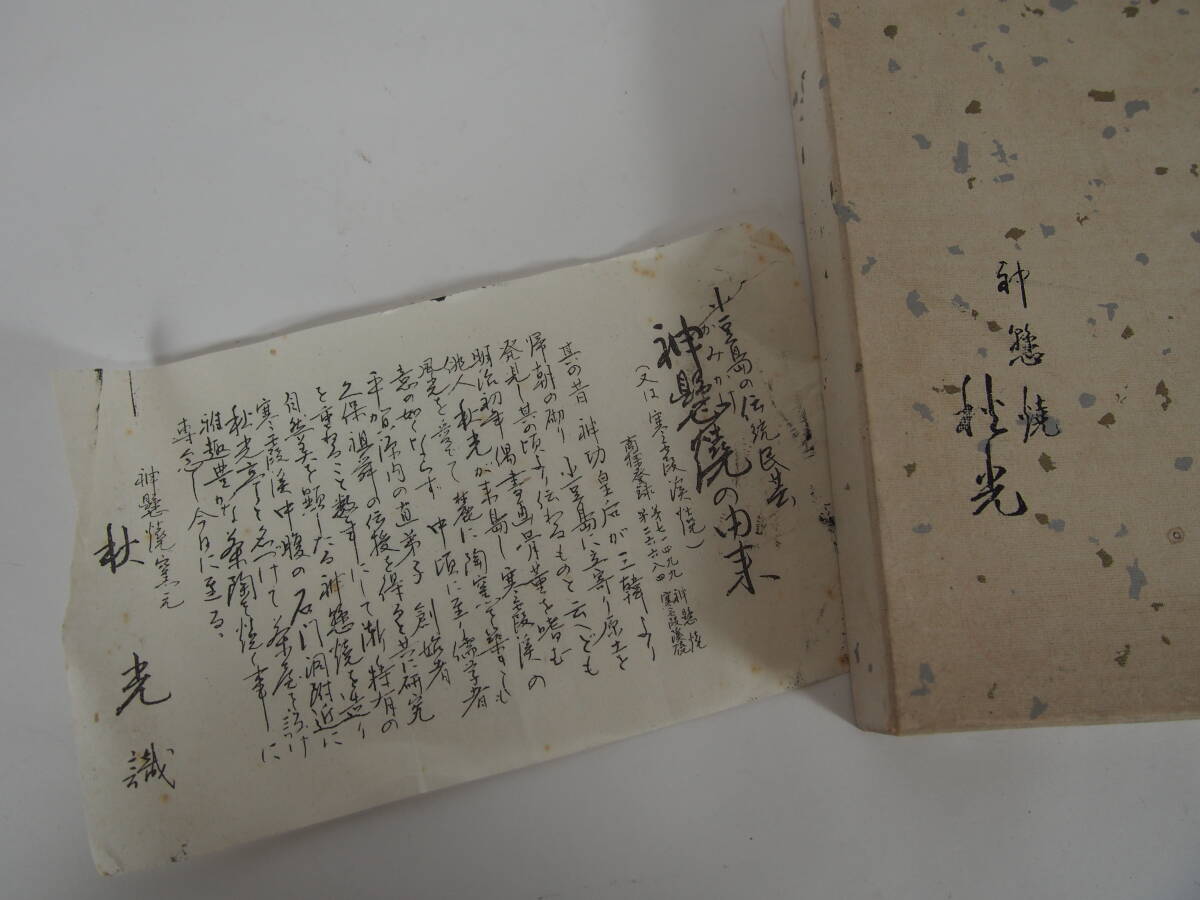 小豆島の伝統民芸
かみかけ
神懸焼の由来
(又は寒霞渓焼)
商標登録 第七一四九九 神懸焼
第二六六八四 寒霞渓焼
其の昔 神功皇后が三韓より
帰朝の砌り小豆島に立寄り原土を
発見し其の頃より伝わるものと云へども
明治初年偶書画骨董を嗜む
俳人秋光が来島し、寒霞渓の
風光を愛でて麓に陶窯を築くも
意の如くならず 中頃に至り儒学者
平賀源内の直弟子 創始者
久保祖舜の伝授を得ると共に研究
を重ねること数年にして漸く特有の
自然美を顕したる神懸焼を造り
寒霞渓中腹の石門洞附近に
秋光亭と名づけて茶屋を設け
雅趣豊かな茶陶を焼く事に
専念し今日に至る、
神懸焼窯元
秋光識
神懸焼
秋光